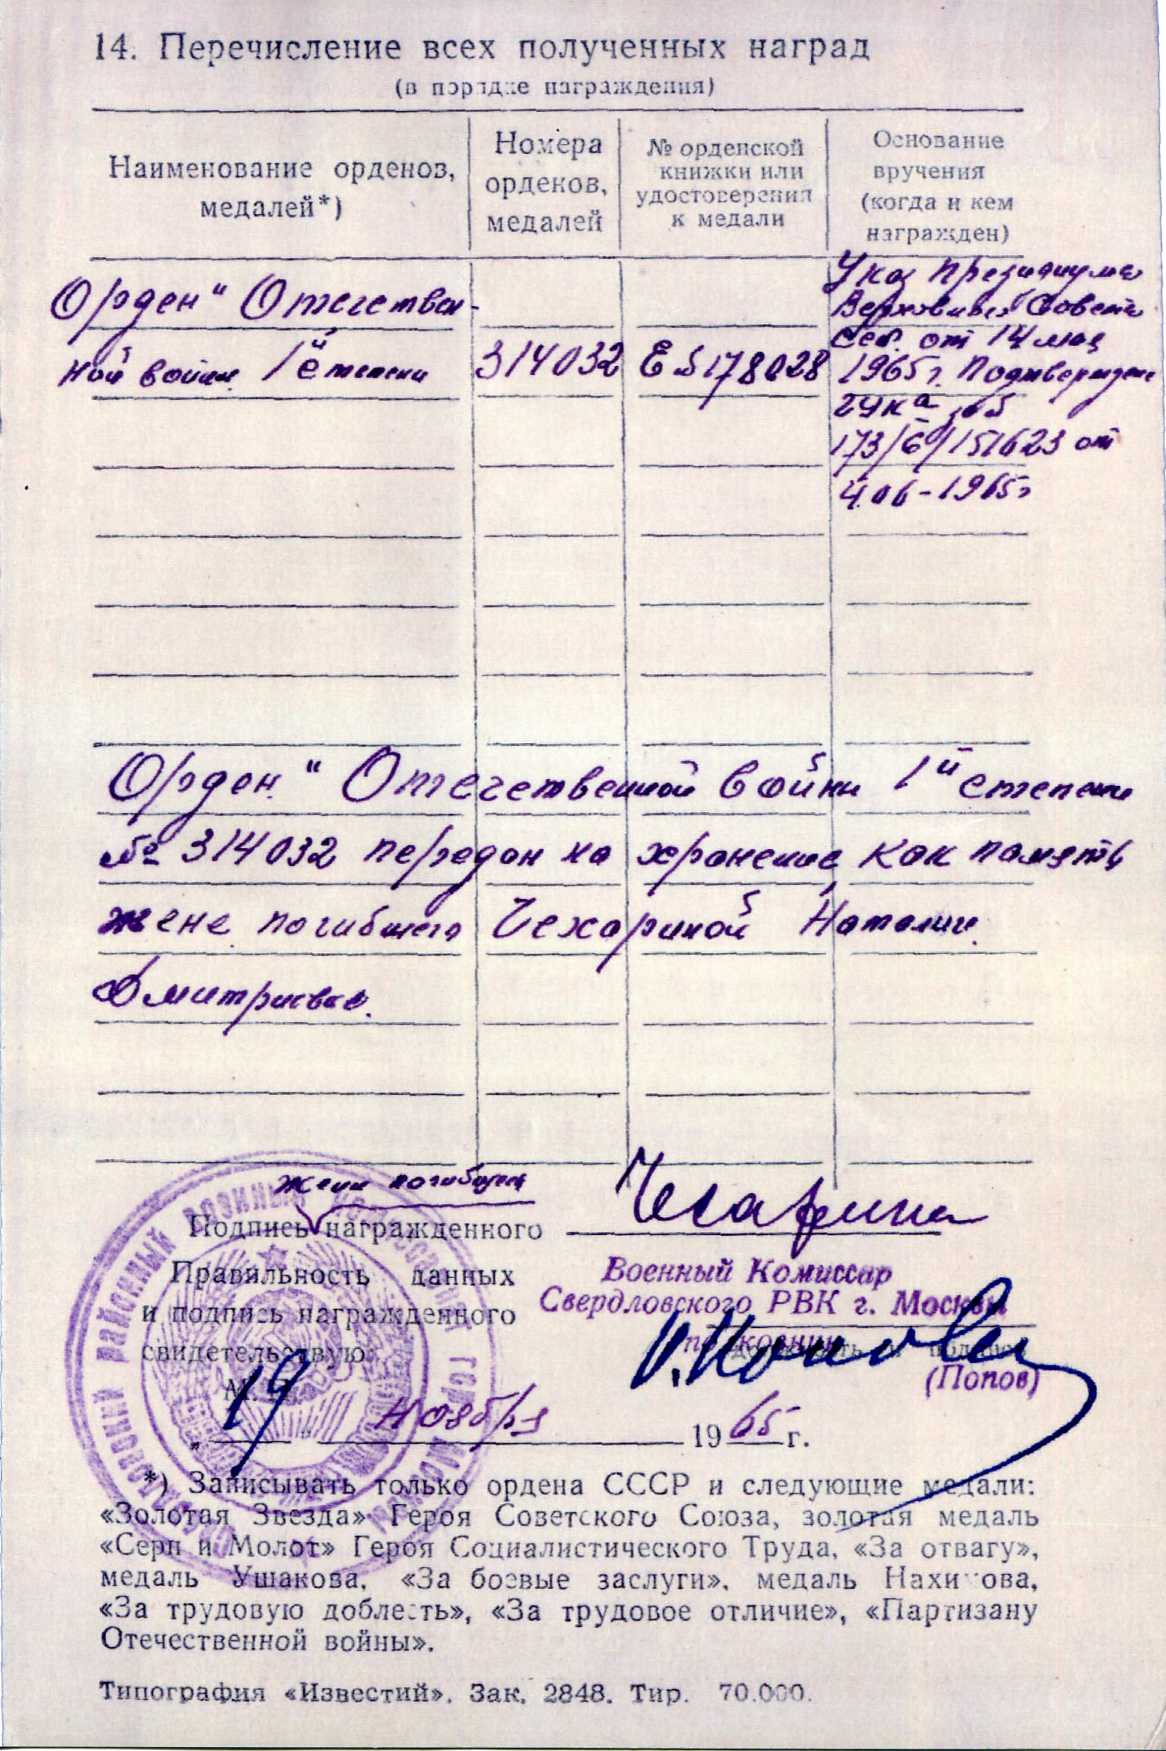 14. Перечисление всех полученных наград
(в порядке награждения)
Наименование орденов, медалей*)
Номера орденов, медалей
№ орденской книжки или удостоверения к медали
Основание вручения (когда и кем награжден)
Орден "Отечествен-
ной войны 1й степени
314032
Е №178028
Указ Президиума
Верховного Совета
от 14 мая
1965г. Подтвержден
173/6/151623 от
4.06-1965г
Орден "Отечественной войны 1й степени
№ 314032 передан на хранение как память
жене погибшего Чехариной Наталии
Дмитриевне.
жены погибшего
Подпись награжденного
Чехарина
Правильность данных
и подпись награжденного
свидетельствую:
М.П.
Военный Комиссар
Свердловского РВК г. Москвы
полковник
должность и подпись
(Попов)
„19" ноября 1965 г.
*) Записывать только ордена СССР и следующие медали:
«Золотая Звезда» Героя Советского Союза, золотая медаль
«Серп и Молот» Героя Социалистического Труда, «За отвагу»,
медаль Ушакова, «За боевые заслуги», медаль Нахимова,
«За трудовую доблесть», «За трудовое отличие», «Партизану
Отечественной войны».
Типография «Известий». Зак. 2848. Тир. 70.000.